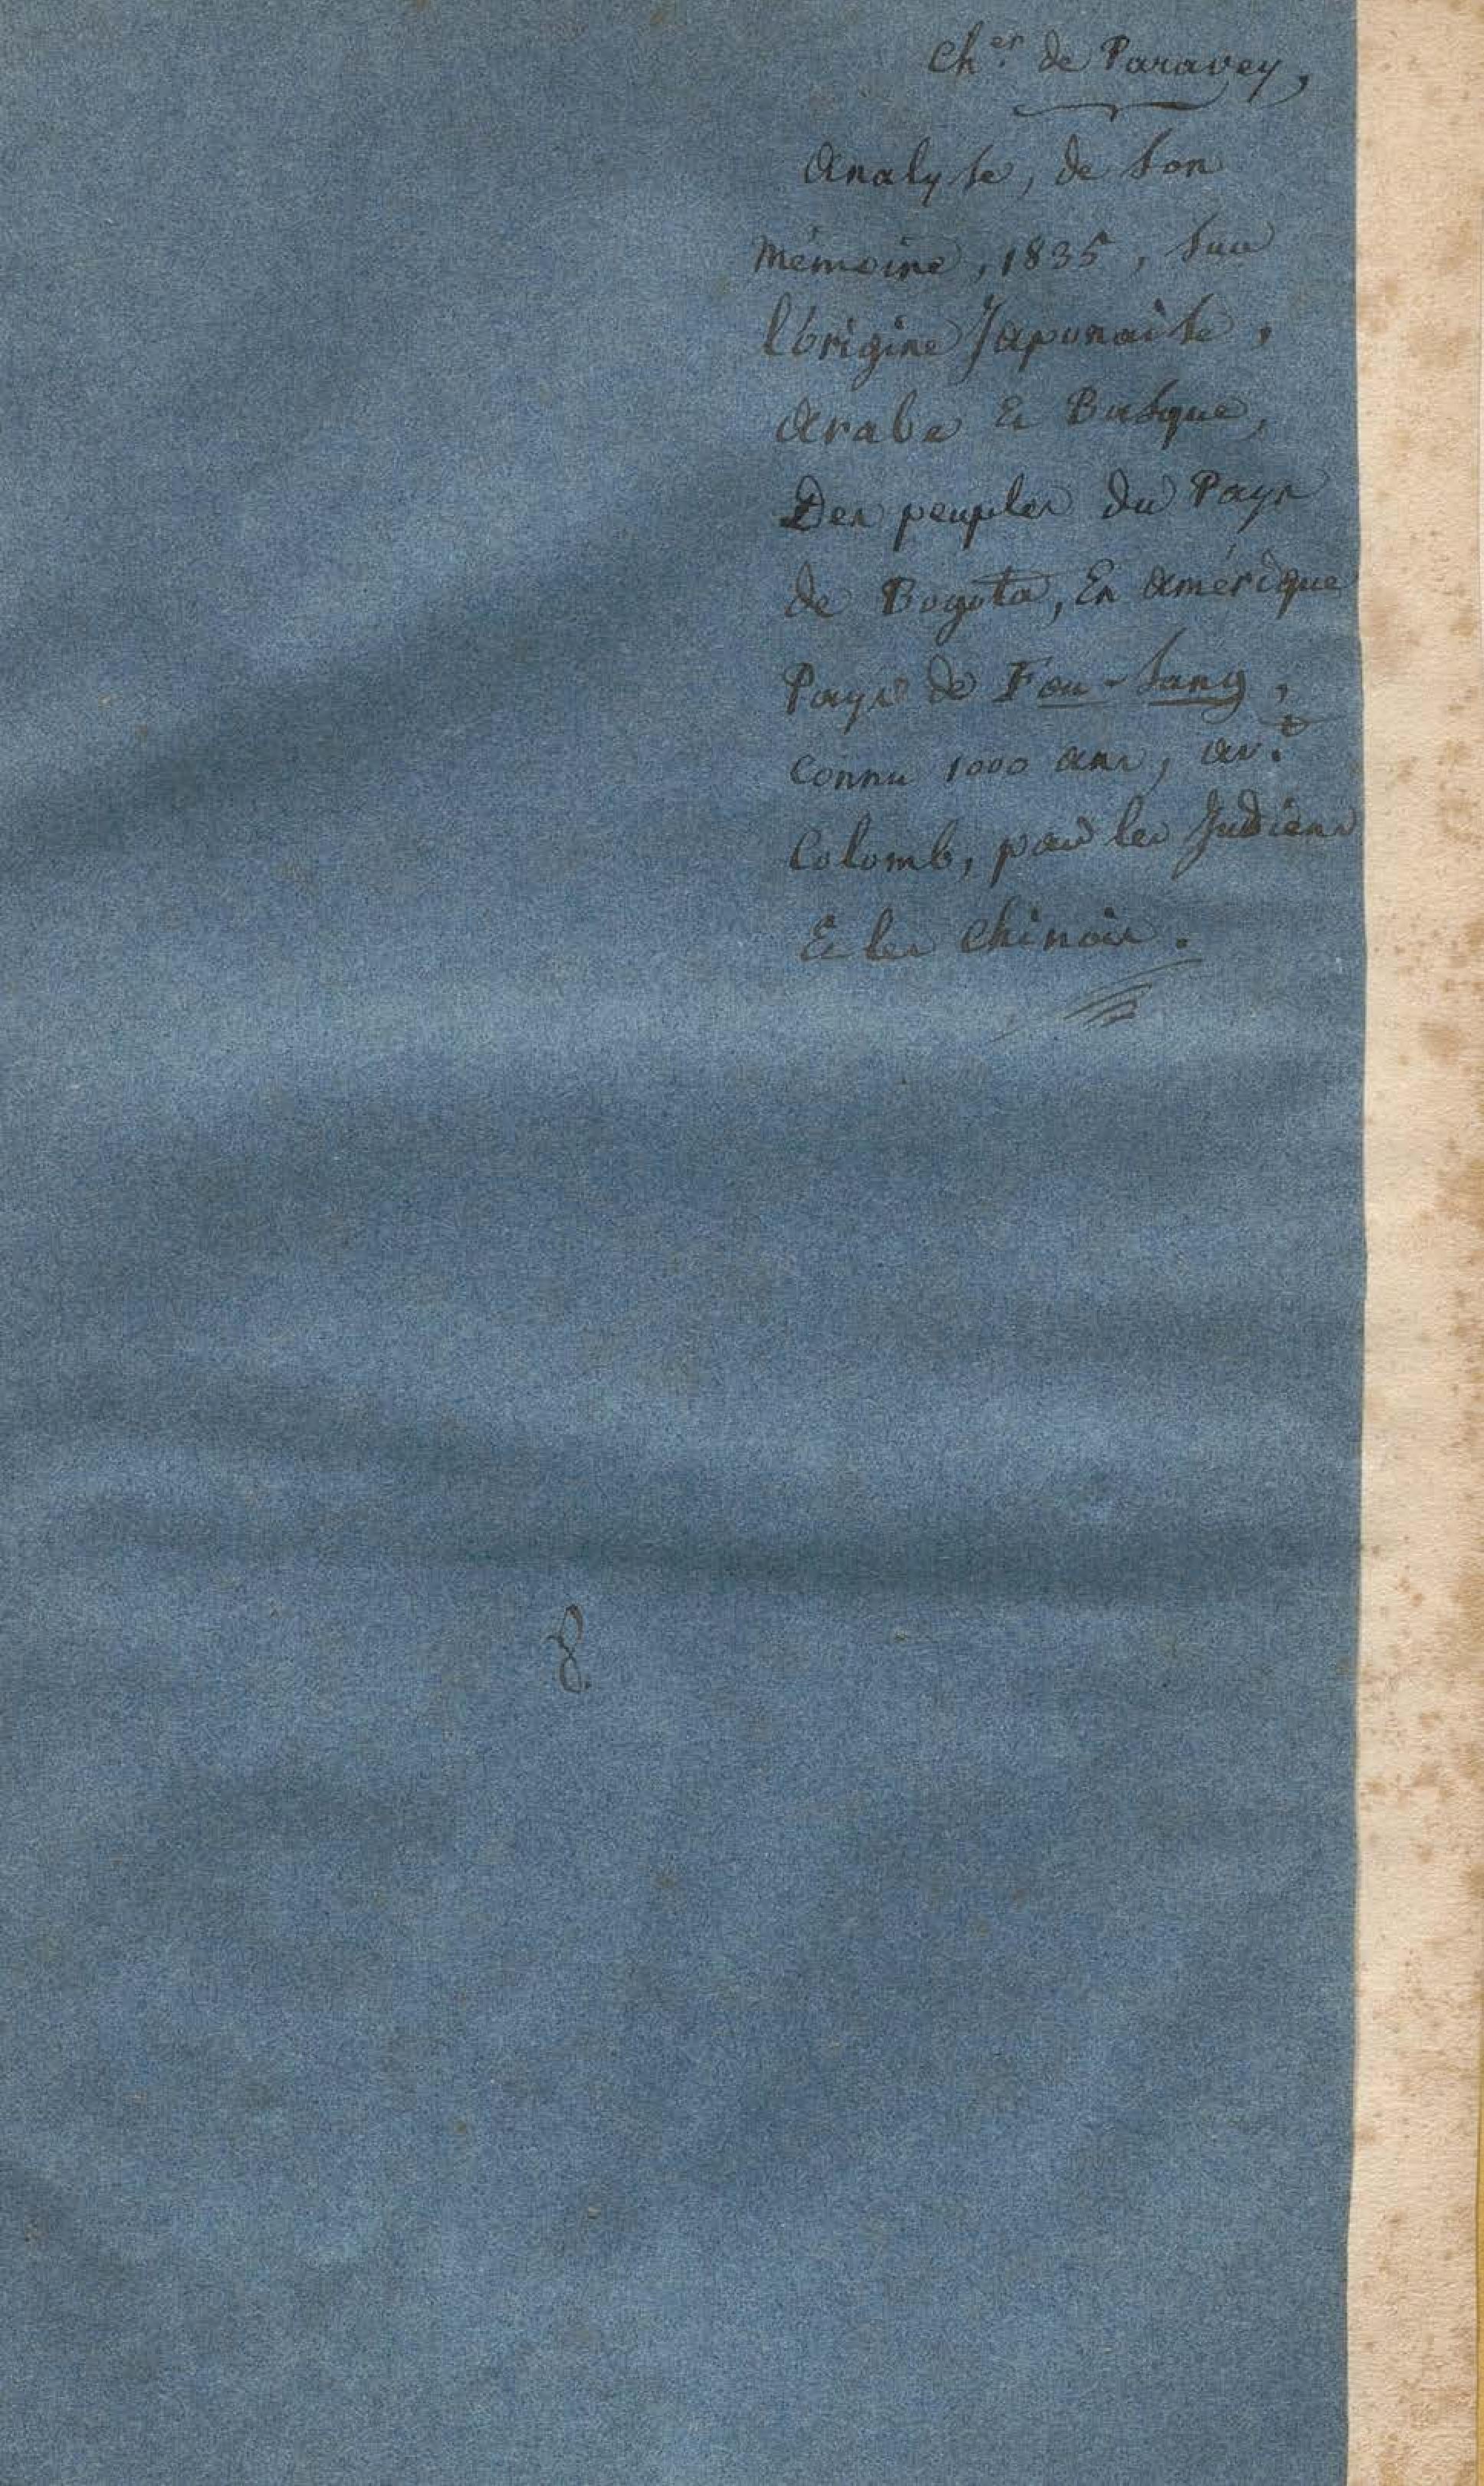 Ch.er de Paravey,
Analyse, de son
Mémoire, 1835, sur
l'origine Japonaise,
Arabe Et Basque,
Des peuples du Pays
de Bogota, En Amérique
Pays de Fou-Sang,
Connu 1000 ans, av.t
Colomb, par les Indiens
Et les Chinois.